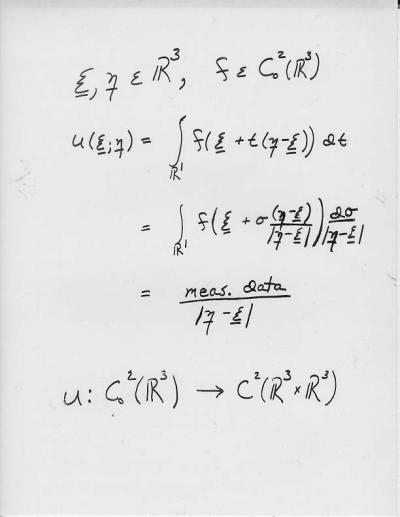 ξ, η ε ℝ³, f ε C₀²(ℝ³)
u(ξ;η) = ∫_ℝ¹ f(ξ + t(η-ξ)) dt
= ∫_ℝ¹ f(ξ + σ (η-ξ)/|η-ξ|) dσ/|η-ξ|
= meas. data / |η-ξ|
u: C₀²(ℝ³) → C²(ℝ³×ℝ³)